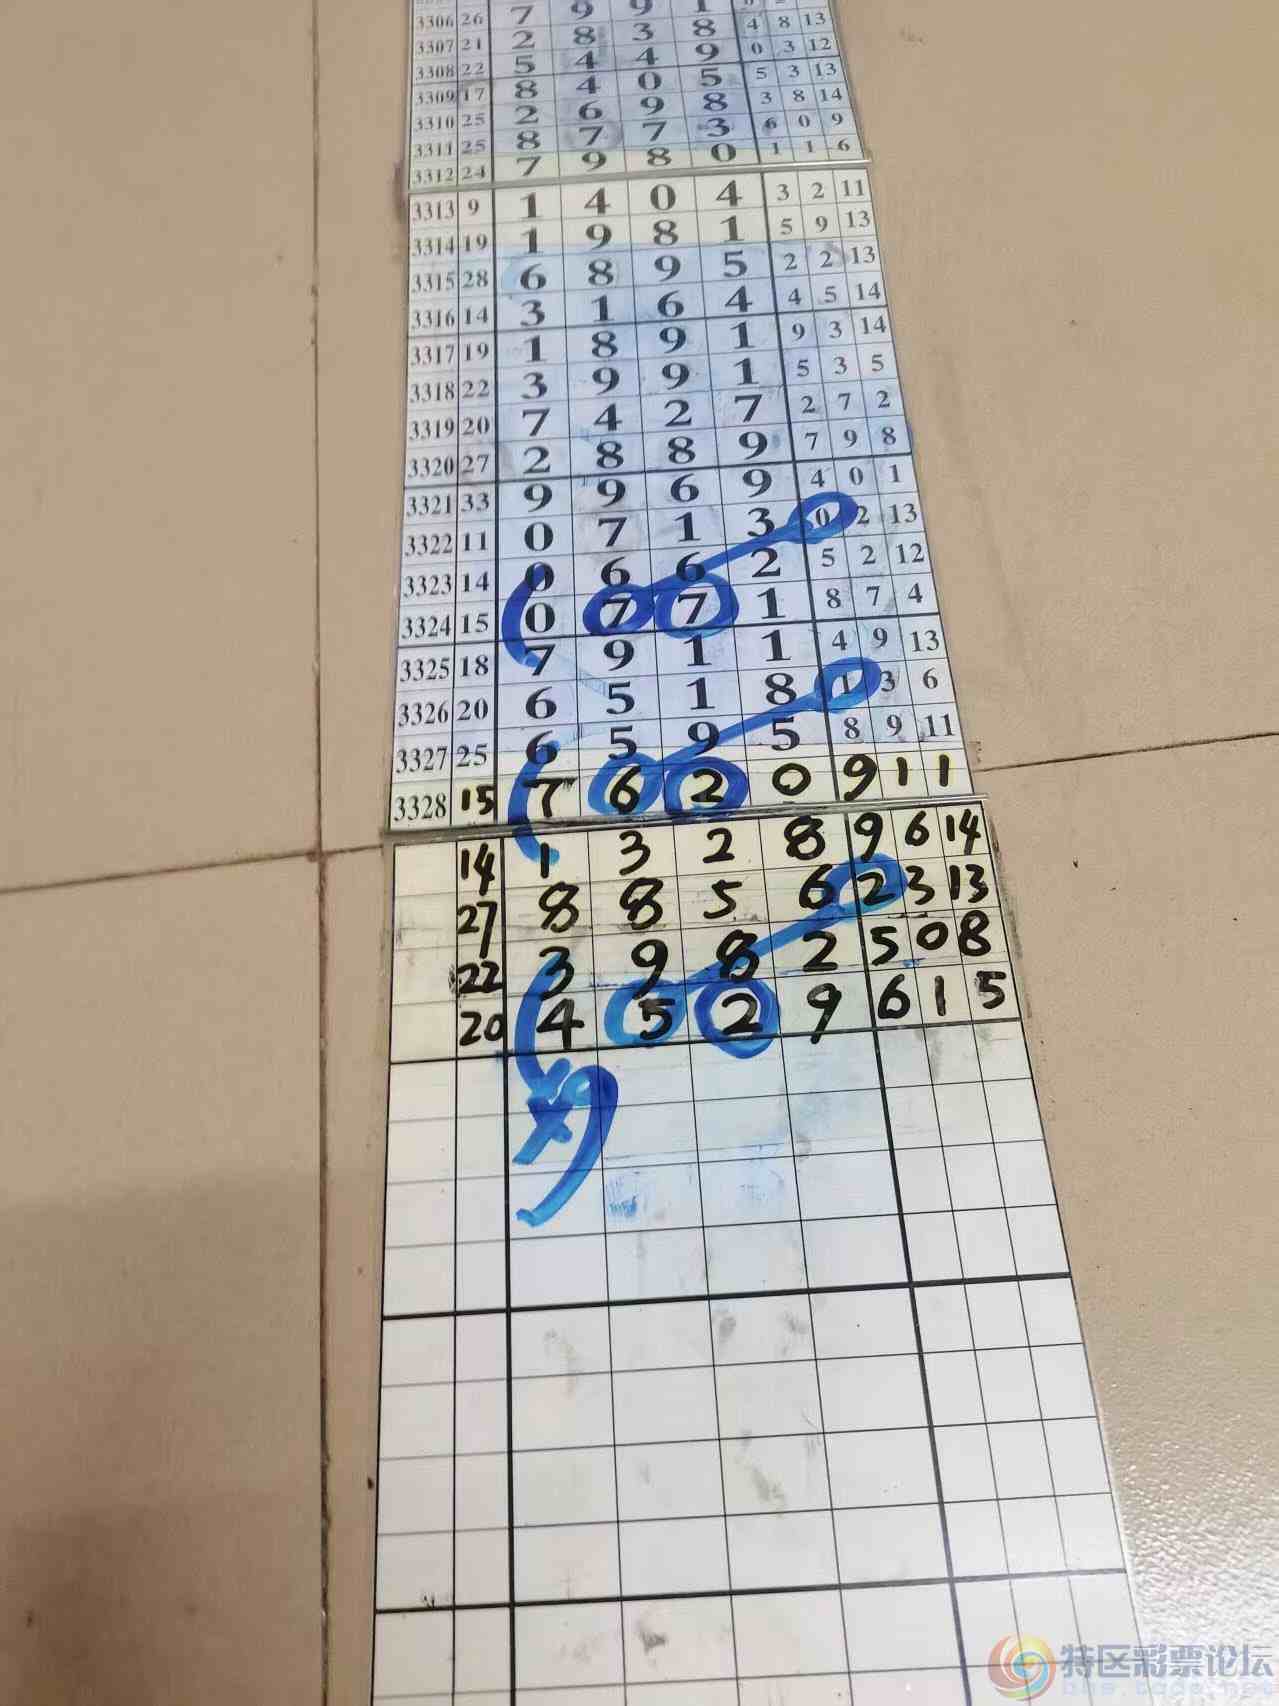 3306 26 7 9 9 1
3307 21 2 8 3 8 4 8 13
3308 22 5 4 4 9 0 3 12
3309 17 8 4 0 5 5 3 13
3310 25 2 6 9 8 3 8 14
3311 25 8 7 7 3 6 0 9
3312 24 7 9 8 0 1 1 6
3313 9 1 4 0 4 3 2 11
3314 19 1 9 8 1 5 9 13
3315 28 6 8 9 5 2 2 13
3316 14 3 1 6 4 4 5 14
3317 19 1 8 9 1 9 3 14
3318 22 3 9 9 1 5 3 5
3319 20 7 4 2 7 2 7 2
3320 27 2 8 8 9 7 9 8
3321 33 9 9 6 9 4 0 1
3322 11 0 7 1 3 0 2 13
3323 14 0 6 6 2 5 2 12
3324 15 0 7 7 1 8 7 4
3325 18 7 9 1 1 4 9 13
3326 20 6 5 1 8 1 3 6
3327 25 6 5 9 5 8 9 11
3328 15 7 6 2 0 9 1 1
14 1 3 2 8 9 6 14
27 8 8 5 6 2 3 13
22 3 9 8 2 5 0 8
20 4 5 2 9 6 1 5
特区彩票论坛